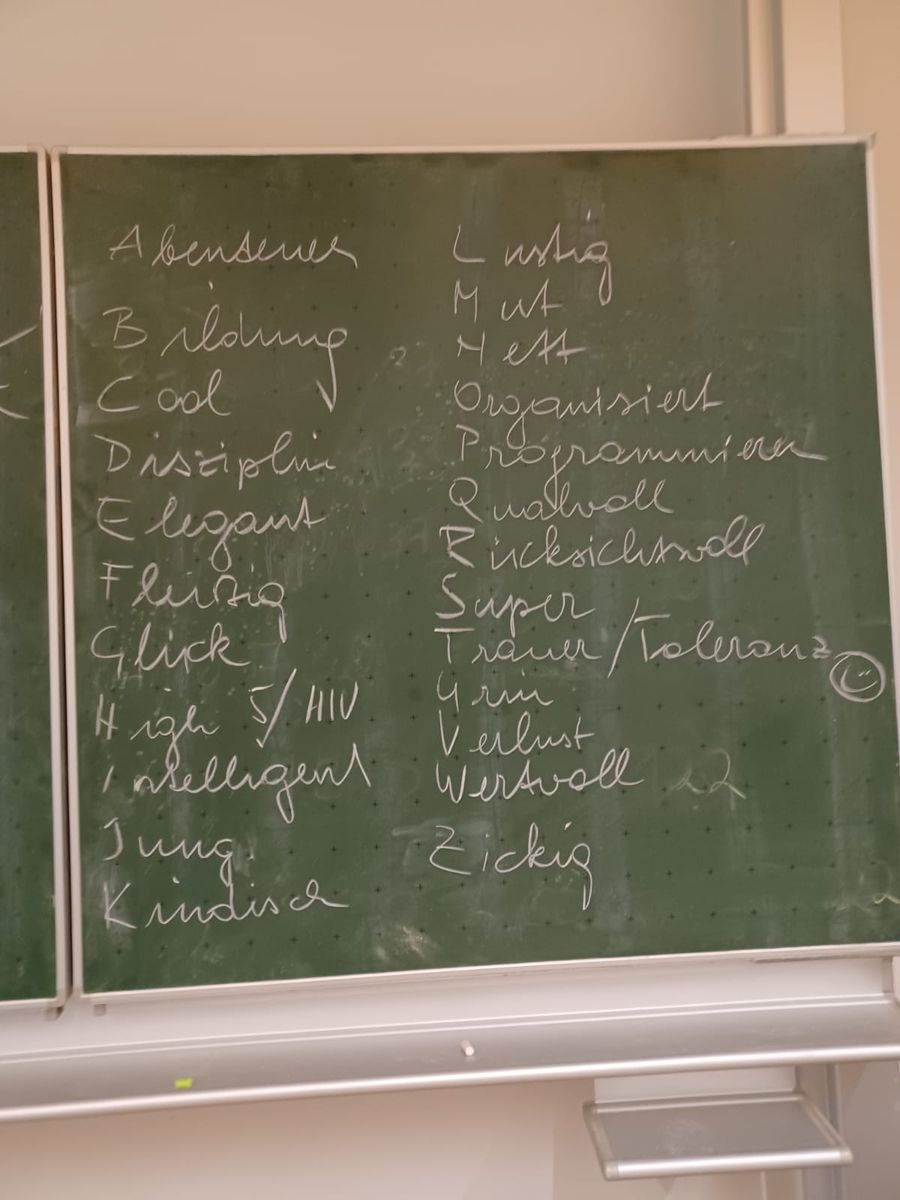 Abenteuer
Bildung
Cool
Disziplin
Elegant
Fleißig
Glück
High 5/HIV
Intelligent
Jung
Kindisch
Lustig
Mut
Nett
Organisiert
Programmieren
Qualvoll
Rücksichtsvoll
Super
Trauer/Toleranz
Urin
Verlust
Wertvoll
Zickig